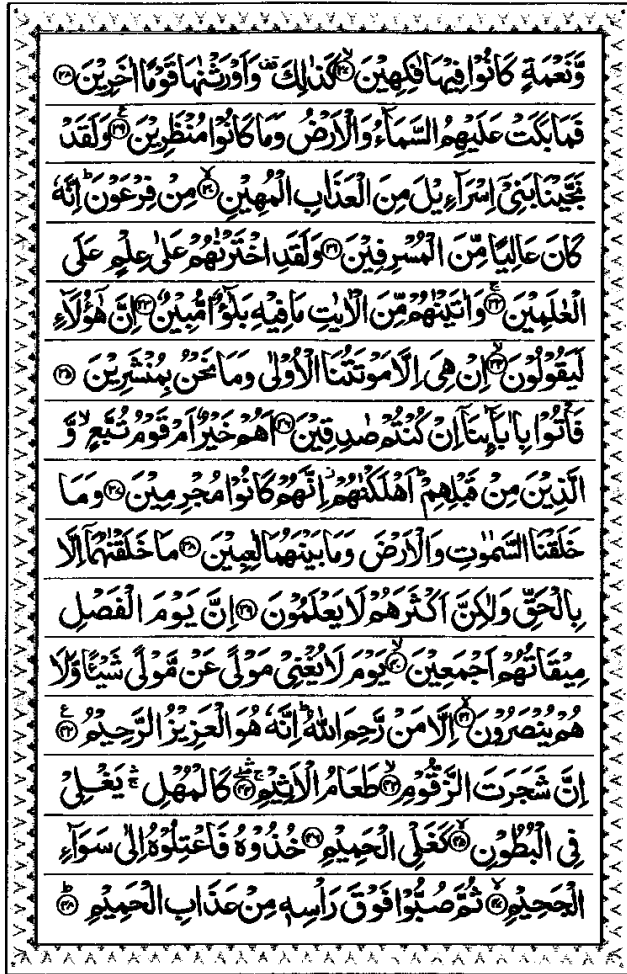 وَّنَعْمَةٍ كَانُوْا فِيْهَا فٰكِهِيْنَ ﴿۲۷﴾ كَذٰلِكَ وَاَوْرَثْنٰهَا قَوْمًا اٰخَرِيْنَ ﴿۲۸﴾
فَمَا بَكَتْ عَلَيْهِمُ السَّمَآءُ وَالْاَرْضُ وَمَا كَانُوْا مُنْظَرِيْنَ ﴿۲۹﴾ وَلَقَدْ
نَجَّيْنَا بَنِيْٓ اِسْرَآءِيْلَ مِنَ الْعَذَابِ الْمُهِيْنِ ﴿۳۰﴾ مِنْ فِرْعَوْنَ ؕ اِنَّهٗ
كَانَ عَالِيًا مِّنَ الْمُسْرِفِيْنَ ﴿۳۱﴾ وَلَقَدِ اخْتَرْنٰهُمْ عَلٰى عِلْمٍ عَلَى
الْعٰلَمِيْنَ ﴿۳۲﴾ وَاٰتَيْنٰهُمْ مِّنَ الْاٰيٰتِ مَا فِيْهِ بَلٰٓؤٌا مُّبِيْنٌ ﴿۳۳﴾ اِنَّ هٰٓؤُلَآءِ
لَيَقُوْلُوْنَ ﴿۳۴﴾ اِنْ هِىَ اِلَّا مَوْتَتُنَا الْاُوْلٰى وَمَا نَحْنُ بِمُنْشَرِيْنَ ﴿۳۵﴾
فَاْتُوْا بِاٰبَآئِنَآ اِنْ كُنْتُمْ صٰدِقِيْنَ ﴿۳۶﴾ اَهُمْ خَيْرٌ اَمْ قَوْمُ تُبَّعٍ ۙ وَّ
الَّذِيْنَ مِنْ قَبْلِهِمْ ؕ اَهْلَكْنٰهُمْ ۫ اِنَّهُمْ كَانُوْا مُجْرِمِيْنَ ﴿۳۷﴾ وَمَا
خَلَقْنَا السَّمٰوٰتِ وَالْاَرْضَ وَمَا بَيْنَهُمَا لٰعِبِيْنَ ﴿۳۸﴾ مَا خَلَقْنٰهُمَآ اِلَّا
بِالْحَقِّ وَلٰكِنَّ اَكْثَرَهُمْ لَا يَعْلَمُوْنَ ﴿۳۹﴾ اِنَّ يَوْمَ الْفَصْلِ
مِيْقَاتُهُمْ اَجْمَعِيْنَ ﴿۴۰﴾ يَوْمَ لَا يُغْنِيْ مَوْلًى عَنْ مَّوْلًى شَيْئًا وَّلَا
هُمْ يُنْصَرُوْنَ ﴿۴۱﴾ اِلَّا مَنْ رَّحِمَ اللّٰهُ ؕ اِنَّهٗ هُوَ الْعَزِيْزُ الرَّحِيْمُ ﴿۴۲﴾
اِنَّ شَجَرَتَ الزَّقُّوْمِ ﴿۴۳﴾ طَعَامُ الْاَثِيْمِ ﴿۴۴﴾ كَالْمُهْلِ ۛۚ يَغْلِيْ
فِى الْبُطُوْنِ ﴿۴۵﴾ كَغَلْىِ الْحَمِيْمِ ﴿۴۶﴾ خُذُوْهُ فَاعْتِلُوْهُ اِلٰى سَوَآءِ
الْجَحِيْمِ ﴿۴۷﴾ ثُمَّ صُبُّوْا فَوْقَ رَاْسِهٖ مِنْ عَذَابِ الْحَمِيْمِ ﴿۴۸﴾